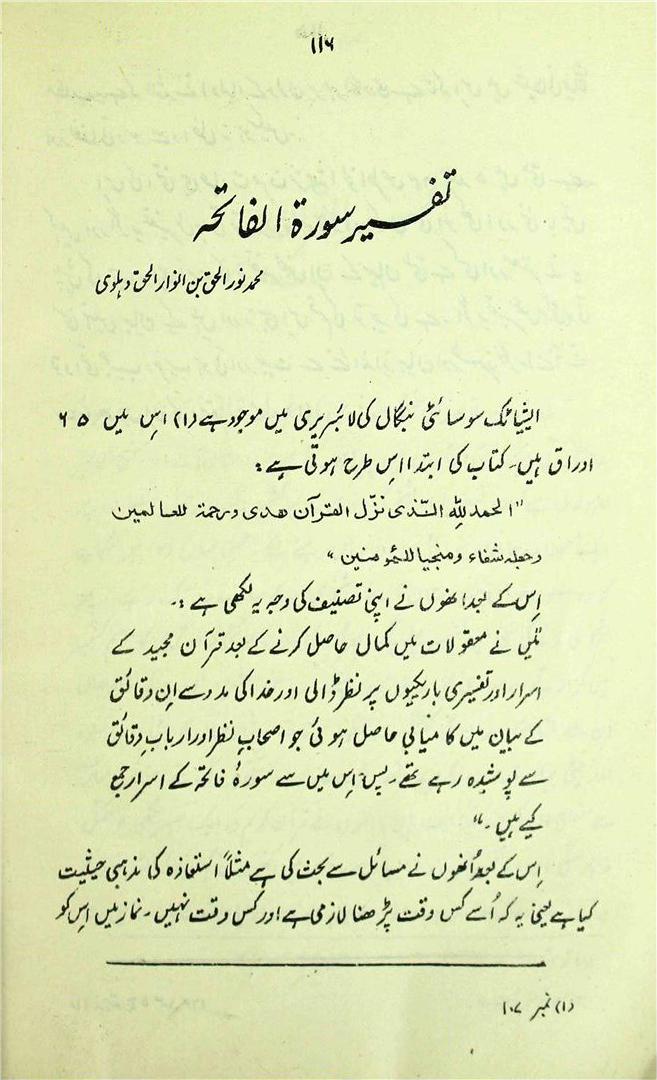 ۱۱۶
تفسیر سورۃ الفاتحہ
محمد نور الحق بن انوار الحق دہلوی
ایشیاٹک سوسائٹی بنگال کی لائبریری میں موجود ہے (۱) اس میں ۶۵
اوراق ہیں۔ کتاب کی ابتدا اس طرح ہوتی ہے:
"الحمد للہ الذی نزّل القرآن ھدی ورحمۃ للعالمین
وجعلہ شفاء ومنجیا للمؤمنین"
اس کے بعد انھوں نے اپنی تصنیف کی وجہ یہ لکھی ہے :۔
"میں نے معقولات میں کمال حاصل کرنے کے بعد قرآن مجید کے
اسرار اور تفسیری باریکیوں پر نظر ڈالی اور خدا کی مدد سے ان دقائق
کے بیان میں کامیابی حاصل ہوئی جو اصحابِ نظر اور اربابِ دقائق
سے پوشیدہ رہے تھے۔ پس اس میں سے سورۂ فاتحہ کے اسرار جمع
کیے ہیں۔"
اس کے بعد اُنھوں نے مسائل سے بحث کی ہے مثلاً استعاذہ کی مذہبی حیثیت
کیا ہے یعنی یہ کہ اُسے کس وقت پڑھنا لازمی ہے اور کس وقت نہیں۔ نماز میں اس کو
(۱) نمبر ۱۰۷